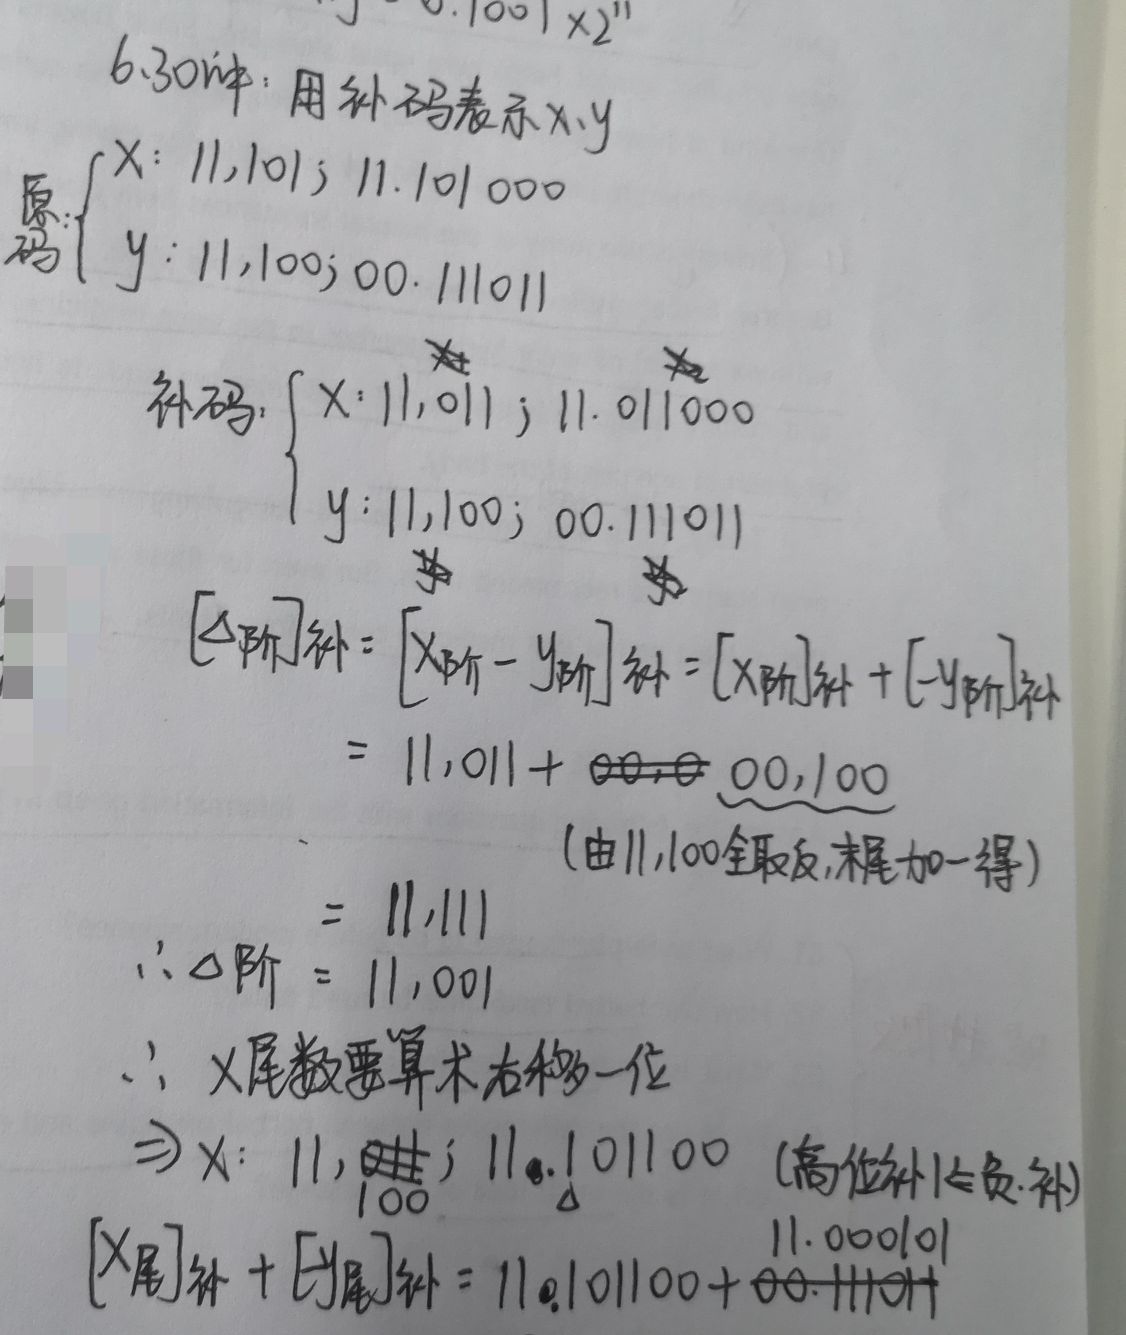 y = 0.1001 ×2^11
6.30冲: 用补码表示x、y
原码: { X: 11,101; 11.101000
y: 11,100; 00.111011
补码: { X: 11,011; 11.011000
y: 11,100; 00.111011
[△阶]补 = [X阶 - y阶]补 = [X阶]补 + [-y阶]补
= 11,011 + 00,100
(由11,100全取反,末尾加一得)
= 11,111
∴ △阶 = 11,001
∴ X尾数要算术右移一位
⇒ X: 11,100; 11.101100 (高位补1⇐负.补)
[X尾]补 + [-y尾]补 = 11.101100 + 11.000101